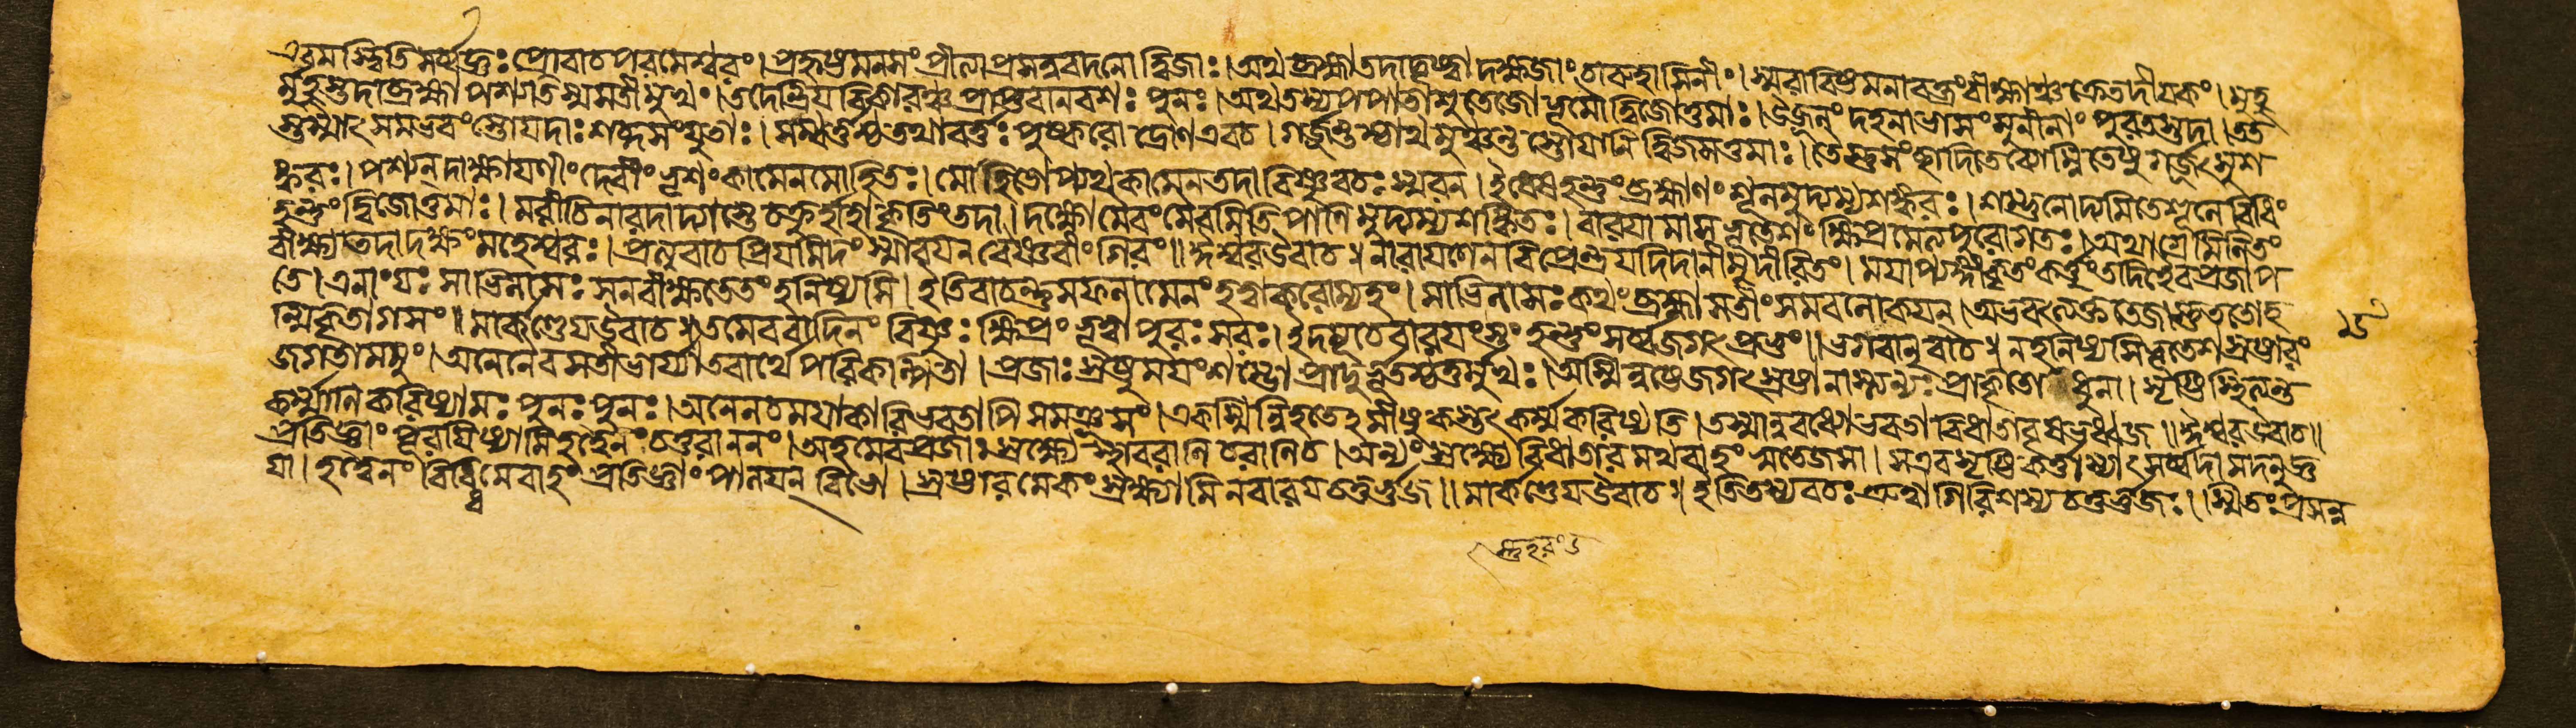 এবমস্ত্বিতি সর্ব্বজ্ঞঃ প্রোবাচ পরমেশ্বরং । প্রহৃষ্টমনসং প্রীত্যা প্রসন্নবদনো দ্বিজাঃ । অথ ব্রহ্মা তদা দৃষ্ট্বা দক্ষজাং চারুহাসিনীং । স্মরাবিষ্টমনা বক্ত্রং বীক্ষাঞ্চক্রে তদীয়কং । মুহু
র্মুহুস্তদা ব্রহ্মা পশ্যতি স্ম সতীমুখং । তদেন্দ্রিয়বিকারঞ্চ প্রাপ্তবানবশঃ পুনঃ । অথ তস্য পপাতাশু তেজো ভূমৌ দ্বিজোত্তমাঃ । তৈজ্জ্বলনং দহনাভাসং মুনীনাং পুরতস্তদা । তত
স্তস্মাৎ সমভবংস্তোয়দাঃ শব্দসংযুতাঃ । সম্বর্ত্তশ্চ তথাবর্ত্তঃ পুষ্করো দ্রোণ এব চ । গর্জ্জন্তশ্চাথ মুঞ্চন্তস্তোয়ানি দ্বিজসত্তমাঃ । তৈস্তু সংছাদিতে ব্যোম্নি তেষু গর্জ্জৎসু শ
ঙ্করঃ । পশ্যন্ দাক্ষায়ণীং দেবীং ভৃশং কামেন মোহিতঃ । মোহিতোপ্যথ কামেন তদা বিষ্ণুবচঃ স্মরন্ । ইয়েষ হন্তুং ব্রহ্মাণং শূলমুদ্যম্য শঙ্করঃ । শম্ভুনোদ্যমিতে শূলে বিধিং
হন্তুং দ্বিজোত্তমাঃ । মরীচিনারদাদ্যাস্তে চক্রুর্হাহাকৃতিং তদা । দক্ষো মৈবং মৈবমিতি পাণিমুদ্যম্য শঙ্কিতঃ । বারয়ামাস ভূতেশং ক্ষিপ্রমেত্য পুরোগতঃ । অথাগ্রে মিলিতং
বীক্ষ্য তদা দক্ষং মহেশ্বরঃ । প্রত্যুবাচাপ্রিয়মিদং স্মারয়ন্ বৈষ্ণবীং গিরং ॥ ঈশ্বর উবাচ । নারায়ণেন বিপ্রেন্দ্র যদিদানীমুদীরিতং । ময়াপ্যঙ্গীকৃতং কর্ত্তুং তদিহৈব প্রজাপ
তে । এনাং যঃ সাভিলাষঃ সন্ বীক্ষতে তং হনিষ্যসি । ইতি বাচন্তু সফলামেনং হত্বা করোম্যহং । সাভিলাষঃ কথং ব্রহ্মা সতীং সমবলোকয়ন্ । অভবত্ত্যক্ততেজাস্তু ততো হ
ন্মি কৃতাগসং ॥ মার্কণ্ডেয় উবাচ ॥ তমেবংবাদিনং বিষ্ণুঃ ক্ষিপ্রং ভূত্বা পুরঃসরঃ । ইদমূচে বারয়ংস্তং হন্তুং সর্ব্বজগৎপ্রভুং ॥ ভগবানুবাচ । ন হনিষ্যসি ভূতেশ স্রষ্টারং
জগতামমুং । অনেনৈব সতী ভার্য্যা তবার্থে পরিকল্পিতা । প্রজাঃ স্রষ্টুময়ং শম্ভো প্রাদুর্ভূতশ্চতুর্মুখঃ । অস্মিন্ হতে জগৎস্রষ্টা নাস্ত্যন্যঃ প্রাকৃতো ধুনা । সৃষ্টিস্থিত্যন্ত
কর্ম্মাণি করিষ্যামঃ পুনঃ পুনঃ । অনেন চ ময়া কারি ভবতাপি সমঞ্জসং । একস্মিন্নিহতে হ্যেষু কস্তৎ কর্ম্ম করিষ্যতি । তস্মান্ন বধ্যো ভবতা বিধাতা বৃষভধ্বজ ॥ ঈশ্বর উবাচ ॥
প্রতিজ্ঞাং পূরয়িষ্যামি হত্বৈনং চতুরাননং । অহমেব প্রজাঃ স্রক্ষ্যে স্থাবরাণি চরাণি চ । অন্যং স্রক্ষ্যে বিধাতারমথবাহং স্বতেজসা । স এব সৃষ্টিকর্ত্তা স্যাৎ সর্ব্বদা মদনুজ্ঞ
য়া । হত্বৈনং বিধিমেবাহং প্রতিজ্ঞাং পালয়ন্ বিভো । স্রষ্টারমেকং স্রক্ষ্যামি ন বারয় চতুর্ভুজ ॥ মার্কণ্ডেয় উবাচ ॥ ইতি তস্য বচঃ শ্রুত্বা গিরিশস্য চতুর্ভুজঃ । স্মিতংপ্রসন্ন